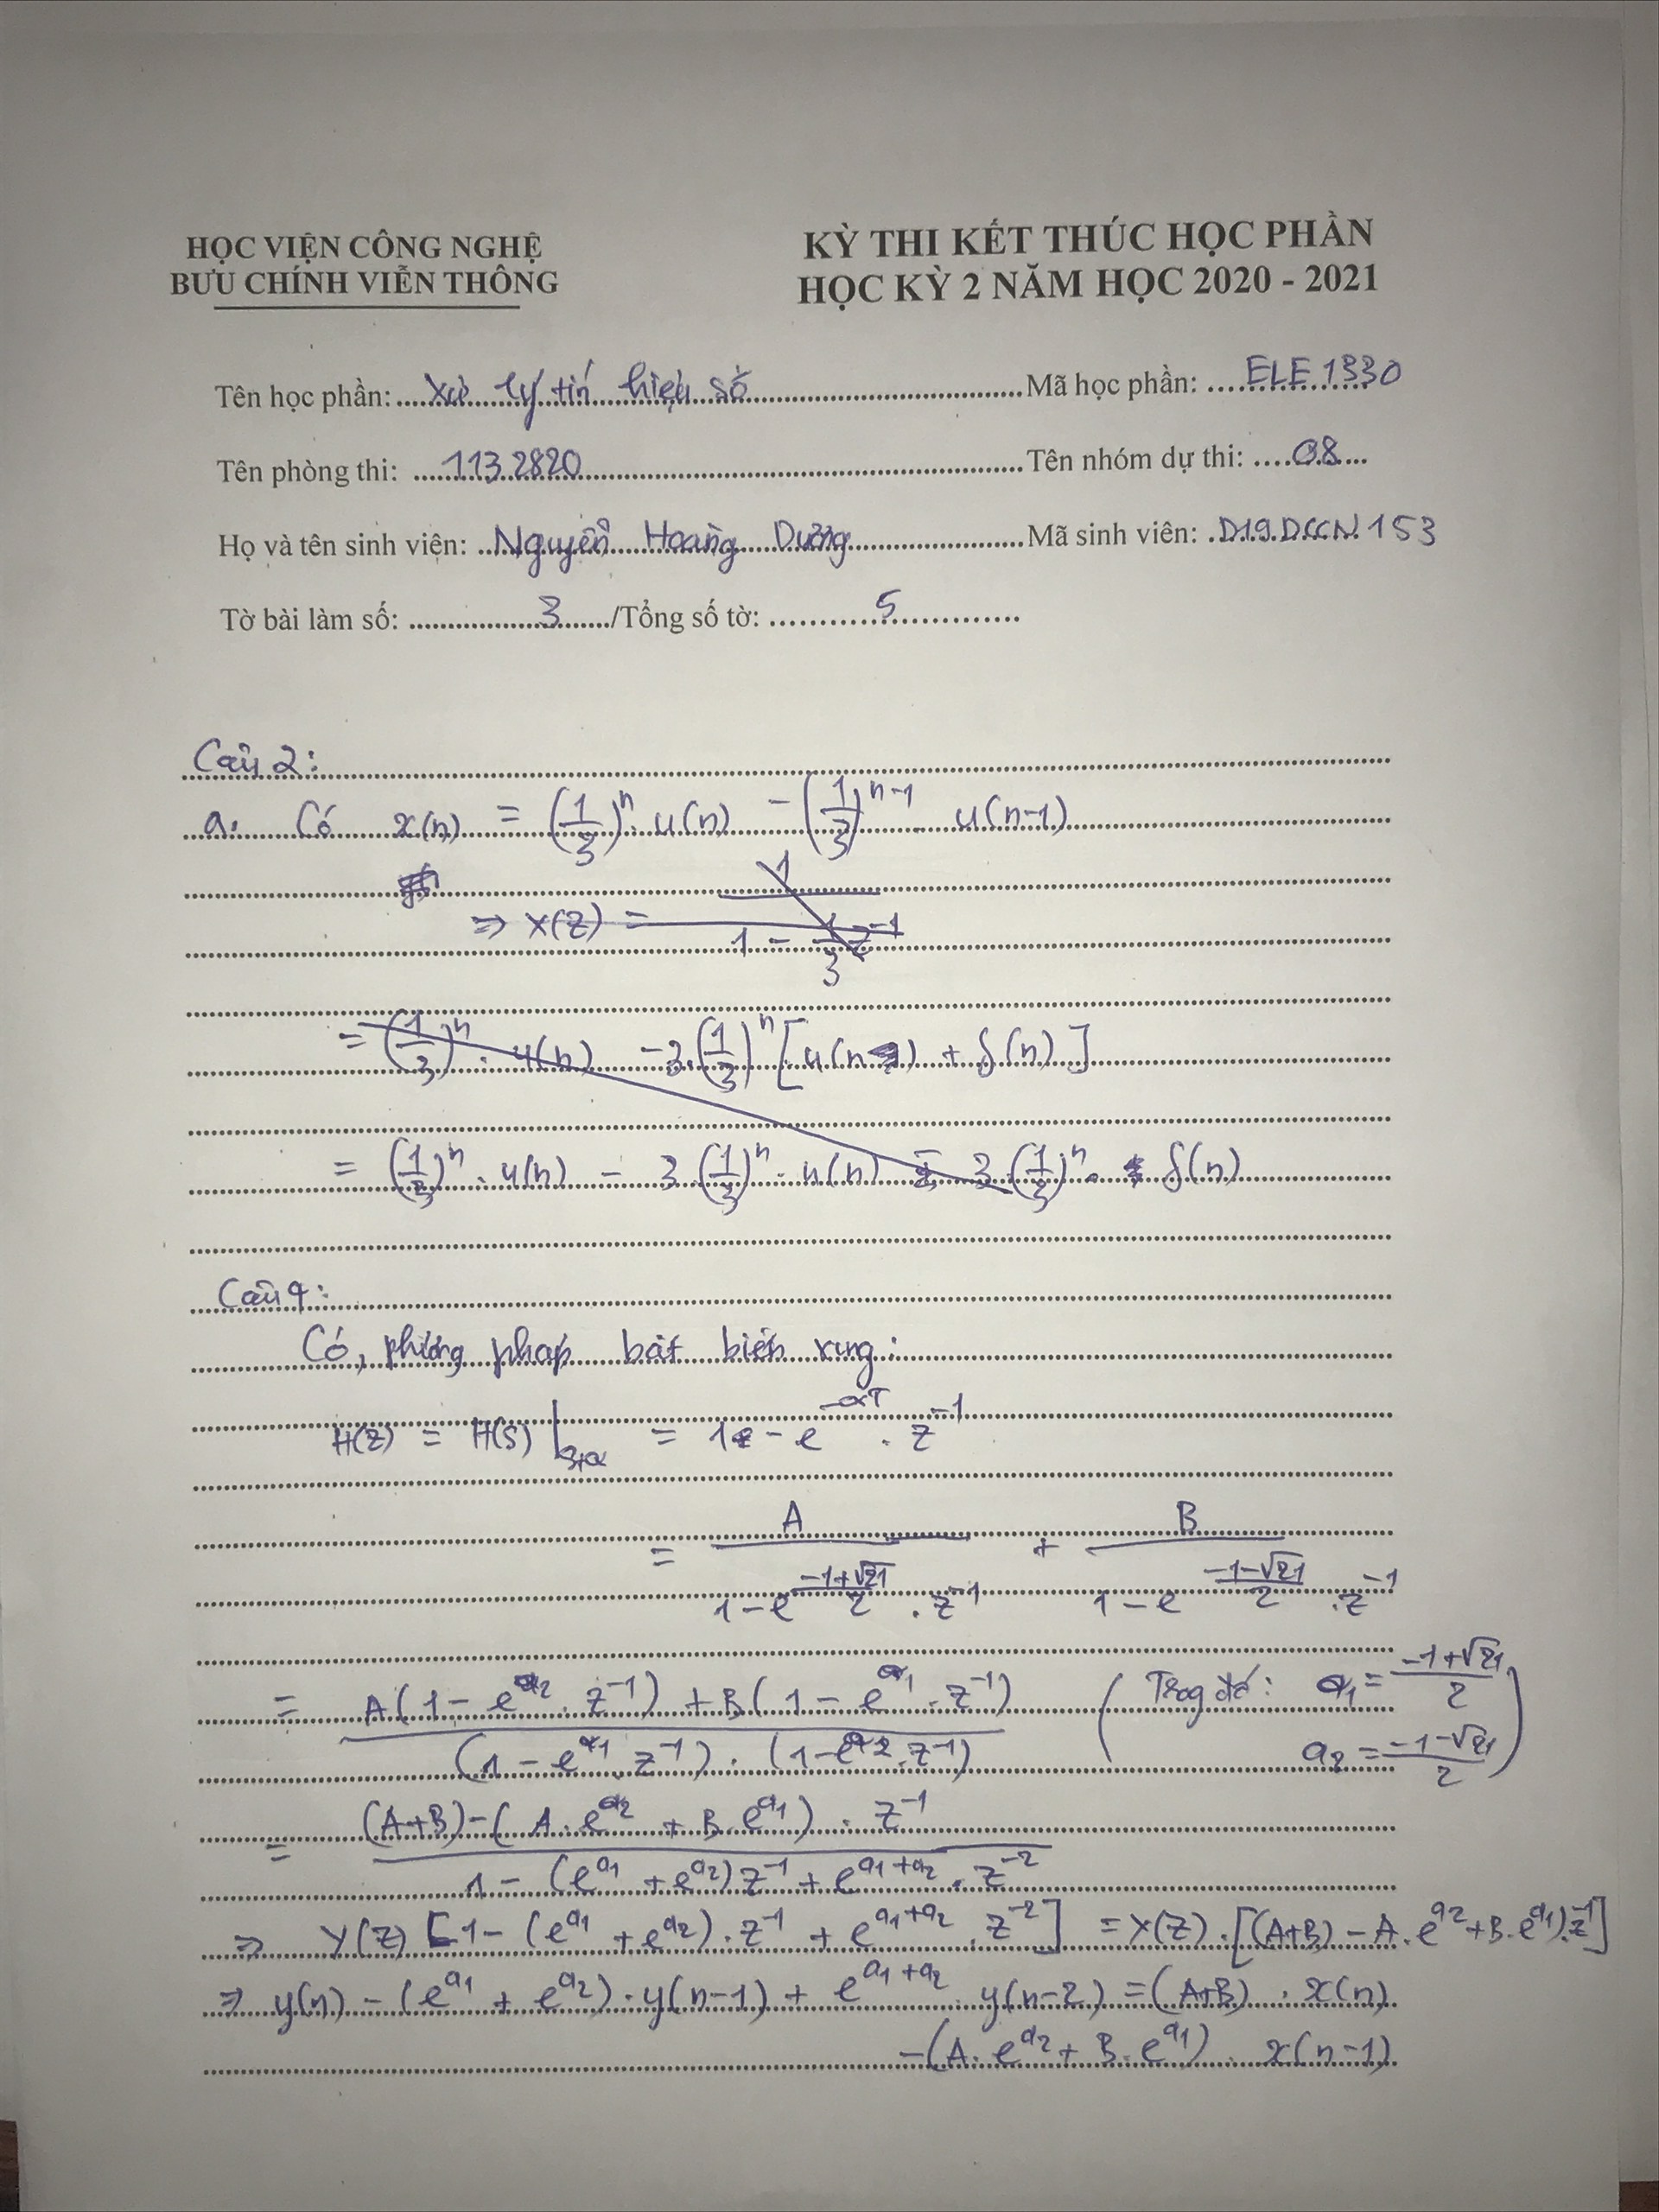 HỌC VIỆN CÔNG NGHỆ
BƯU CHÍNH VIỄN THÔNG
KỲ THI KẾT THÚC HỌC PHẦN
HỌC KỲ 2 NĂM HỌC 2020 - 2021
Tên học phần: Xử lý tín hiệu số Mã học phần: ELE 1330
Tên phòng thi: 113.2820 Tên nhóm dự thi: 08
Họ và tên sinh viên: Nguyễn Hoàng Dương Mã sinh viên: D19DCCN153
Tờ bài làm số: 3 /Tổng số tờ: 5
Câu 2:
a. Có x(n) = (1/3)^n . u(n) - (1/3)^(n-1) u(n-1)
=> X(z) = 1/(1 - 1/3 z^-1)
= (1/3)^n . u(n) - 3.(1/3)^n [u(n) + δ(n)]
= (1/3)^n . u(n) - 3.(1/3)^n . u(n) - 3.(1/3)^n . δ(n)
Câu 4:
Có, phương pháp bất biến xung:
H(z) = H(s)|s+α = 1 - e^(-αT) . z^-1
= A/(1 - e^((-1+√21)/2) . z^-1) + B/(1 - e^((-1-√21)/2) . z^-1)
= (A(1 - e^a2 . z^-1) + B(1 - e^a1 . z^-1))/((1 - e^a1 . z^-1) . (1 - e^a2 . z^-1)) (Trog đó: a1 = (-1+√21)/2
a2 = (-1-√21)/2)
= ((A+B) - (A . e^a2 + B . e^a1) . z^-1)/(1 - (e^a1 + e^a2) z^-1 + e^(a1+a2) . z^-2)
=> Y(z) [1 - (e^a1 + e^a2) . z^-1 + e^(a1+a2) . z^-2] = X(z) . [(A+B) - A . e^a2 + B . e^a1) . z^-1]
=> y(n) - (e^a1 + e^a2) . y(n-1) + e^(a1+a2) . y(n-2) = (A+B) . x(n)
- (A . e^a2 + B . e^a1) . x(n-1)